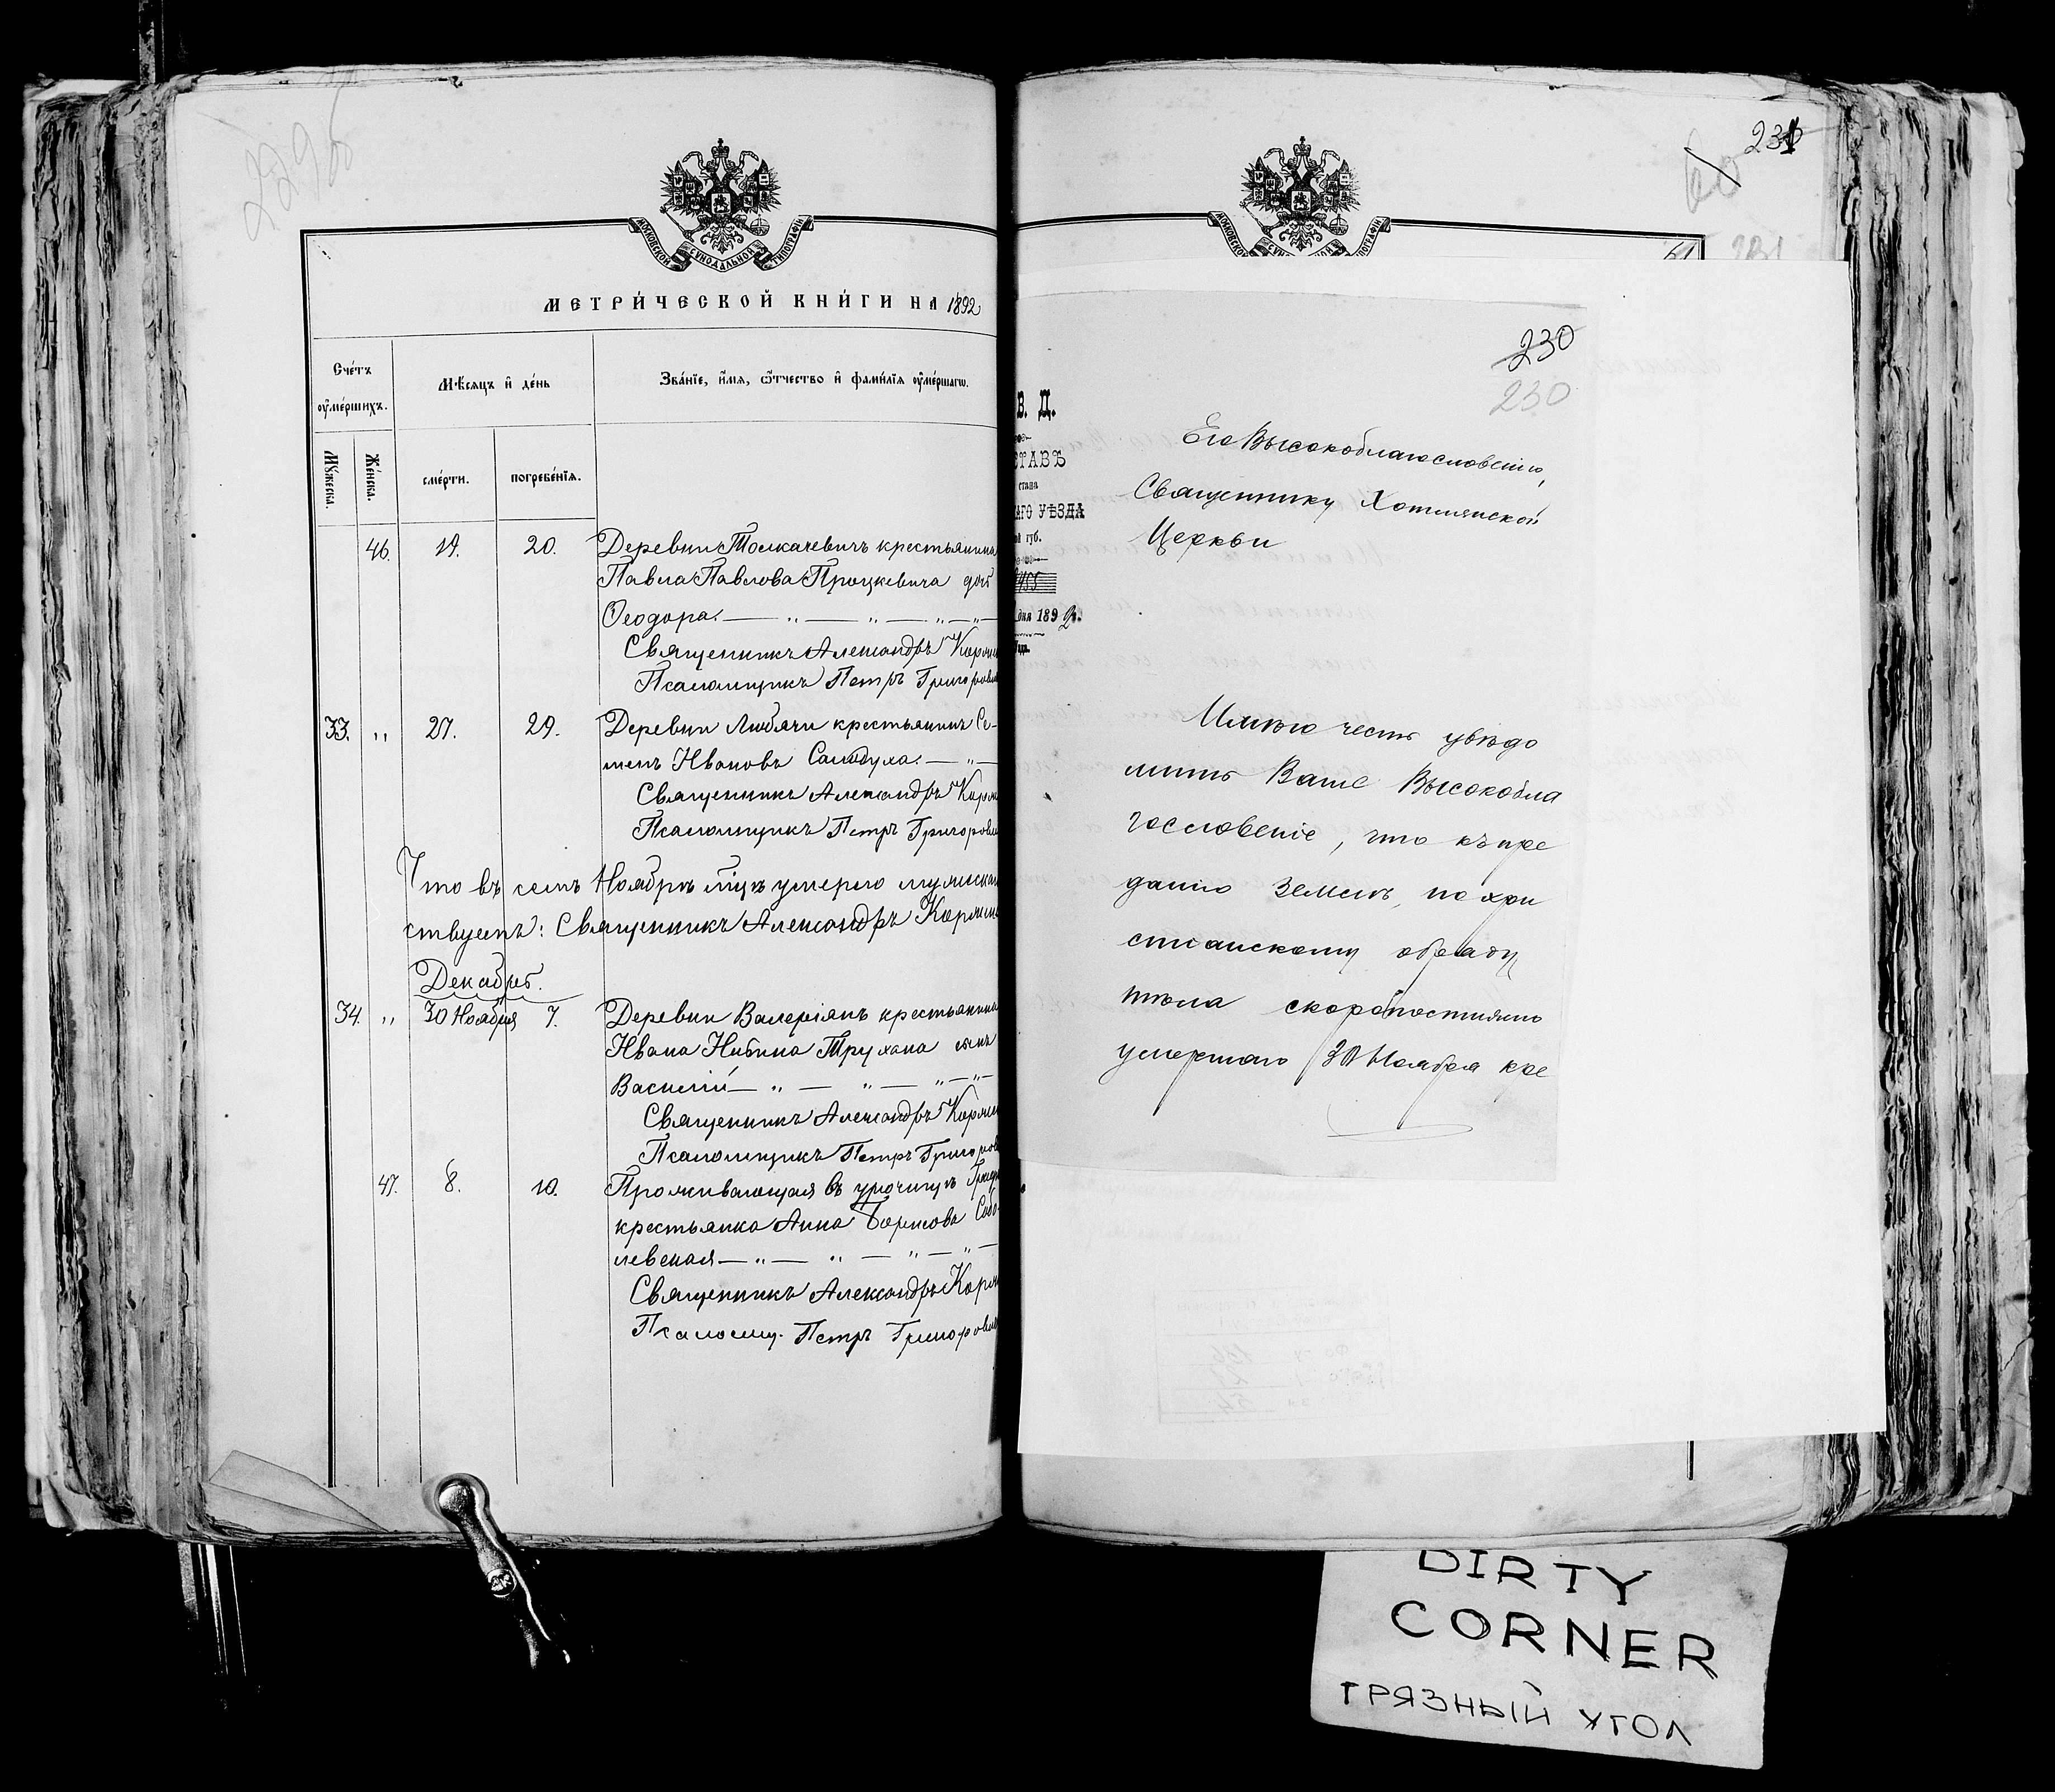 МОСКОВСКОЙ СѴНОДАЛЬНОЙ ТИПОГРАФІИ
МЕТРИ́ЧЕСКОЙ КНИ́ГИ НА 1892
Сче́тъ оумершихъ.
Мѣсяцъ и де́нь
Зва́нїе, и́мя, ѻтчество и фами́лїя оуме́ршагѡ.
Му́жеска.
Же́нска.
сме́рти.
погребе́нїя.
46. 19. 20. Деревни Толкачевичъ крестьянина
Павла Павлова Процкевича дочь
Ѳеодора.
Священникъ Александръ
Псаломщикъ Петръ
33. „ 27. 29. Деревни Любячи крестьянинъ Се-
менъ Ивановъ Самодуха.
Священникъ Александръ
Псаломщикъ Петръ
Что въ семъ Ноябрѣ м-цѣ умерло
ствуемъ: Священникъ Александръ
Декабрь.
34. „ 30 Ноября 7. Деревни Валеріянъ крестьянина
Ивана Трухана сынъ
Василій
Священникъ Александръ
Псаломщикъ Петръ
47. 8. 10. Проживающая въ урочищѣ
крестьянка Анна Борисова Собо-
левская
Священникъ Александръ
Псаломщ. Петръ
231
МОСКОВСКОЙ
230
230
В. Д.
СТАВЪ
стана
АГО УѢЗДА
губ.
дня 1892 г.
Его Высокоблагословенію,
Священнику Хотлянской
Церкви
Имѣю честь увѣдо
мить Ваше Высокобла
гословеніе, что къ пре
данію землѣ, по хри
стіанскому обряду
тѣла скоропостижно
умершаго 30 Ноября кре
DIRTY
CORNER
ГРЯЗНЫЙ УГОЛ